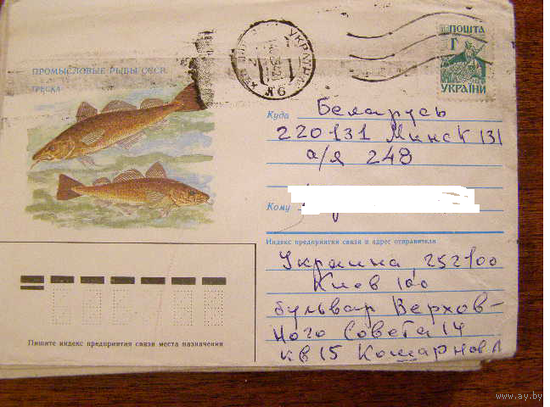 ПРОМЫСЛОВЫЕ РЫБЫ СССР
ТРЕСКА
УКРАЇНА
ПОШТА
УКРАЇНИ
Куда Беларусь
220131 Минск 131
а/я 248
Кому
Индекс предприятия связи и адрес отправителя
Украина, 252100
Киев 100
бульвар Верхов-
ного Совета 14
кв 15 Кошарнов
Пишите индекс предприятия связи места назначения
www.ay.by